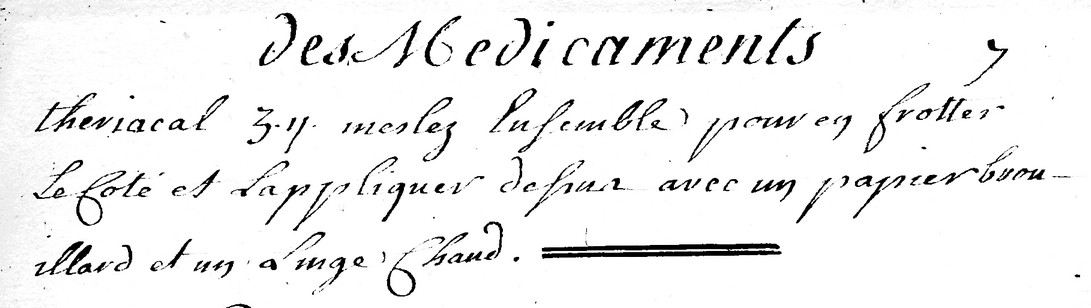 des Medicaments 7
theriacal ʒ.ij. meslez Ensemble pour en frotter
Le Coté et Lappliquer dessus avec un papier brou-
illard et un Linge Chaud.